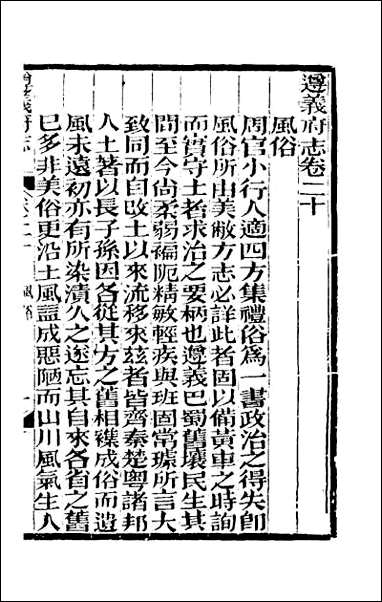 遵義府志卷二十
風俗
周官小行人適四方集禮俗爲一書政治之得失卽
風俗所由美敝方志必詳此者固以備黃車之時詢
而實守土者求治之要柄也遵義巴蜀舊壤民生其
間至今尙柔弱褊阨精敏輕疾與班固常璩所言大
致同而自改土以來流移來兹者皆齊秦楚粵諸邦
人土著以長子孫因各從其方之舊相襍成俗而遺
風未遠初亦有所染漬久之遂忘其自來各省之舊
已多非美俗更沿土風益成惡陋而山川風氣生人
遵義府志
卷二十
風俗
一